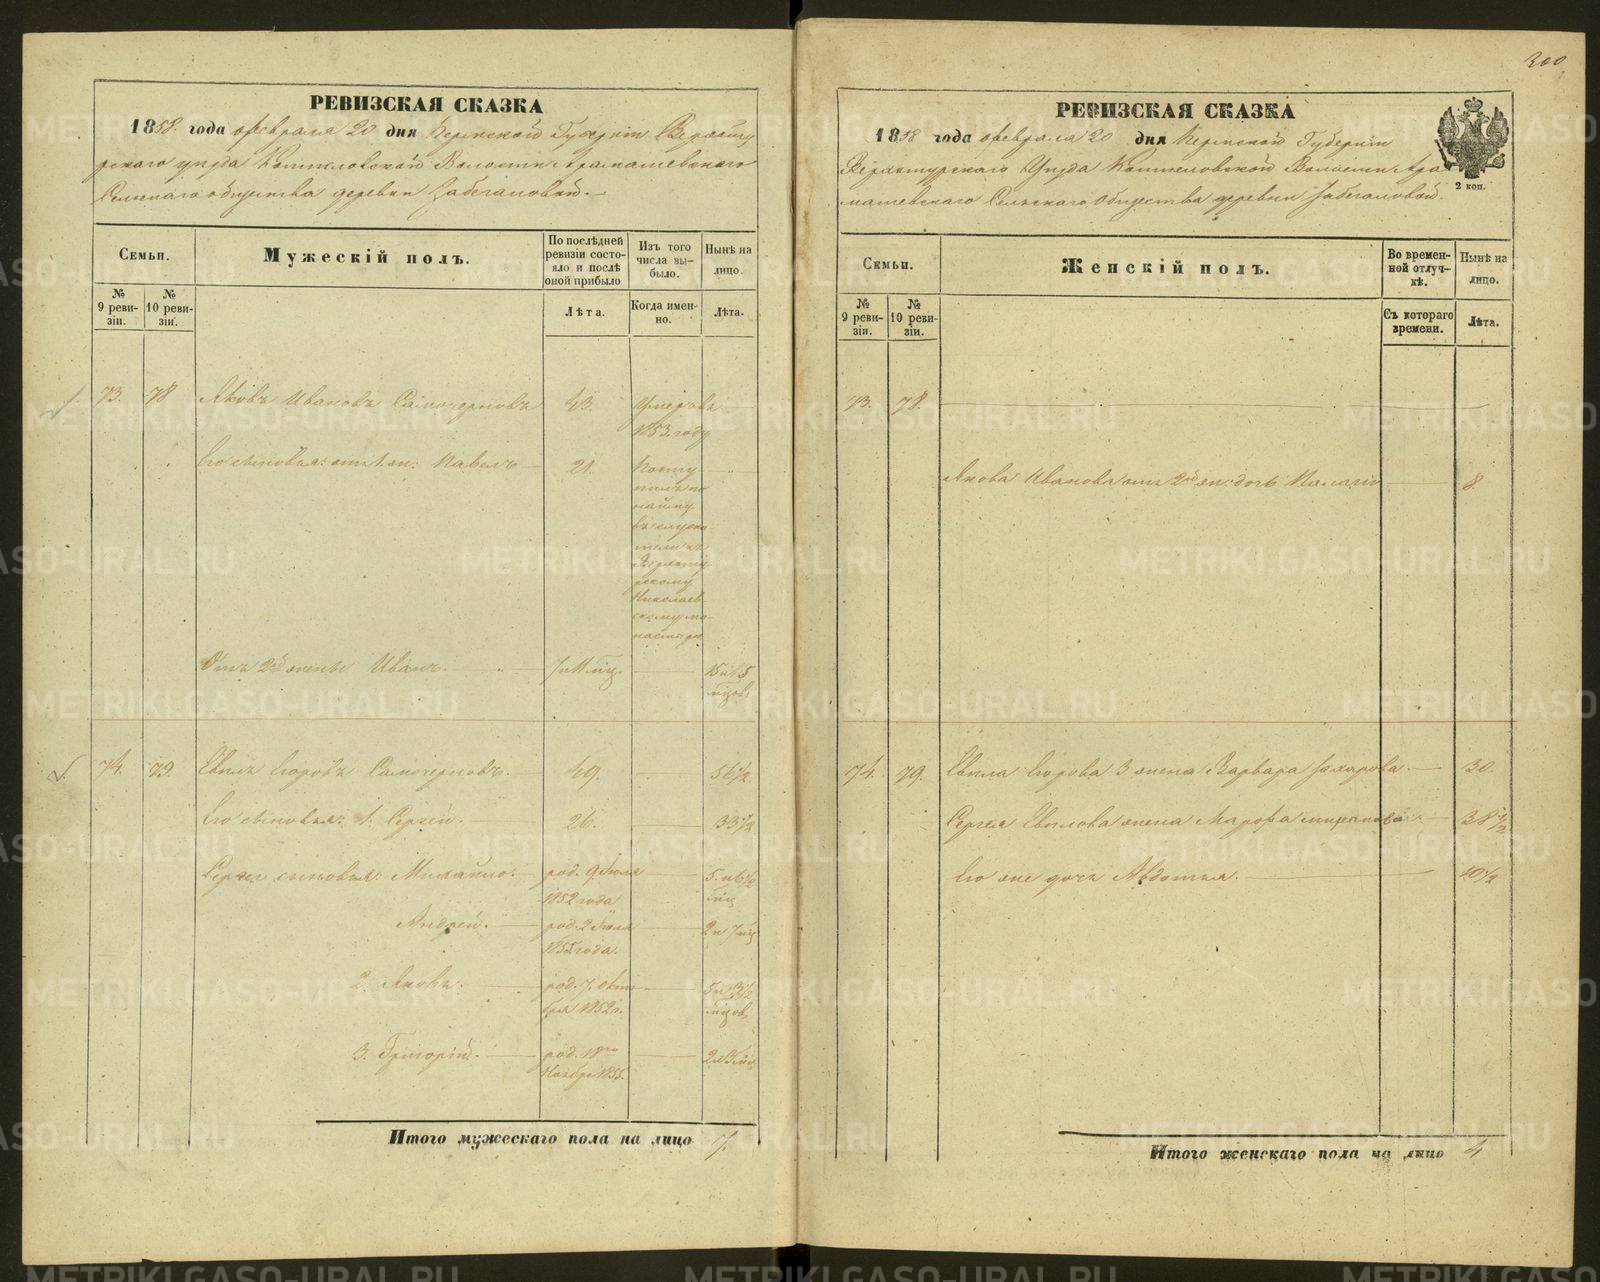 300
РЕВИЗСКАЯ СКАЗКА
1858 года февраля 20 дня Пермской Губерніи Верхоту
рскаго уезда Коптеловской Волости Арамашевскаго
Сельскаго общества деревни Забегаловой.
Семьи.
Мужескій полъ.
По послѣдней ревизіи состояло и послѣ оной прибыло
Изъ того числа выбыло.
Нынѣ на лицо.
№ 9 ревизіи.
№ 10 ревизіи.
Лѣта.
Когда именно.
Лѣта.
73. 78 Яковъ Ивановъ Самочерновъ 43. Умеръ въ
1853 году
Его сыновья: отъ 1 жен: Павелъ 21. Посту
пилъ по
найму
въ служи
тели къ
Верхоту
рскому
Николаев
скому мо
настырю
Отъ 2й жены Иванъ. 7 и 11 мѣц. 15 и 5
мѣцов
74. 79. Евилъ Егоровъ Самочерновъ. 49. 56½.
Его сыновья: 1. Сергей. 26. 33½
Сергея сыновья: Михайло. род. 9 Июля 5. и 6½
1852 года мѣц
Андрей. род. 2 Июля 2 и 7 мц
1855 года.
2. Яковъ. род. 7. Октя 5 и 3½
бря 1852 г. мѣцов
3. Григорій. род. 18го 2 и 3 мѣц
Ноября 1855.
Итого мужескаго пола на лицо 7.
РЕВИЗСКАЯ СКАЗКА
1858 года февраля 20 дня Пермской Губерніи
Верхотурскаго Уезда Коптеловской Волости Ара
машевскаго Сельскаго Общества деревни Забегаловой.
2 коп.
Семьи.
Женскій полъ.
Во временной отлучкѣ.
Нынѣ на лицо.
№ 9 ревизіи.
№ 10 ревизіи.
Съ котораго времени.
Лѣта.
73. 78.
Якова Иванова отъ 2й жен: дочь Палагия 8.
74. 79. Евила Егорова 3 жена Варвара Захарова. 30.
Сергея Евилова жена Марфа 38½
Его же дочь Авдотья. 10½
Итого женскаго пола на лицо 4
METRIKI.GASO-URAL.RU